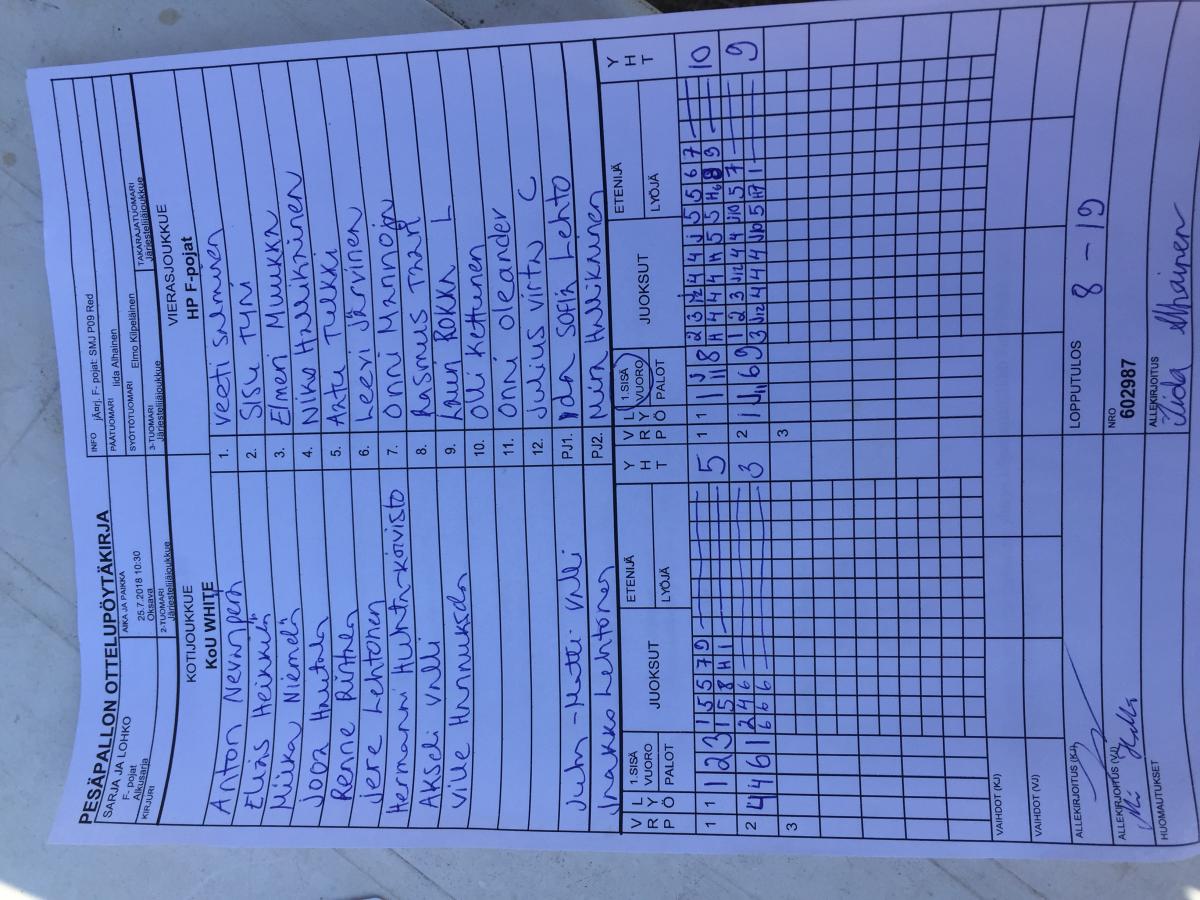 PESÄPALLON OTTELUPÖYTÄKIRJA
INFO jÄorj. F- pojat: SMJ P09 Red
SARJA JA LOHKO
F- pojat
Alkusarja
AIKA JA PAIKKA
25.7.2018 10:30
Oksava
PÄÄTUOMARI Iida Alhainen
SYÖTTÖTUOMARI Elmo Kilpeläinen
KIRJURI
2-TUOMARI
Järjestelijäjoukkue
3-TUOMARI
Järjestelijäjoukkue
TAKARAJATUOMARI
Järjestelijäjoukkue
KOTIJOUKKUE
KoU WHITE
VIERASJOUKKUE
HP F-pojat
Anton Nevanperä 1. Veeti Salminen
Elias Heikkilä 2. Sisu Tyni
Miika Niemelä 3. Elmeri Muukka
Jooa Hautala 4. Niko Hallikainen
Renne Rintala 5. Anttu Tulkki
Jere Lehtonen 6. Leevi Järvinen
Hermanni Huhta-Koivisto 7. Onni Mannoja
Akseli Valli 8. Rasmus
Ville Hannuksela 9. Lauri Rokka L
10. Olli Kettunen
11. Onni Oleander
12. Julius Virta C
Juha-Matti Valli PJ1. Ida Sofia Lehto
Jaakko Lehtonen PJ2. Hallikainen
V R P L Y Ö 1.SISÄ VUORO PALOT JUOKSUT ETENIJÄ LYÖJÄ Y H T V R P L Y Ö 1.SISÄ VUORO PALOT JUOKSUT ETENIJÄ LYÖJÄ Y H T
1 1 1 2 3 1 5 5 7 9 5 1 1 1 J11 8 2 3 J12 4 4 J 5 5 6 7 10
1 5 8 H 1 H 4 4 4 H 5 5 H6 8 9
2 4 4 6 1 2 4 6 3 2 1 J11 6 9 1 2 3 J12 4 4 J10 5 7 9
6 6 6 3 J12 4 4 4 J10 5 H7 1
3 3
VAIHDOT (KJ)
VAIHDOT (VJ)
ALLEKIRJOITUS (KJ) LOPPUTULOS 8 - 19
ALLEKIRJOITUS (VJ) NRO
602987
HUOMAUTUKSET ALLEKIRJOITUS
Iida Alhainen